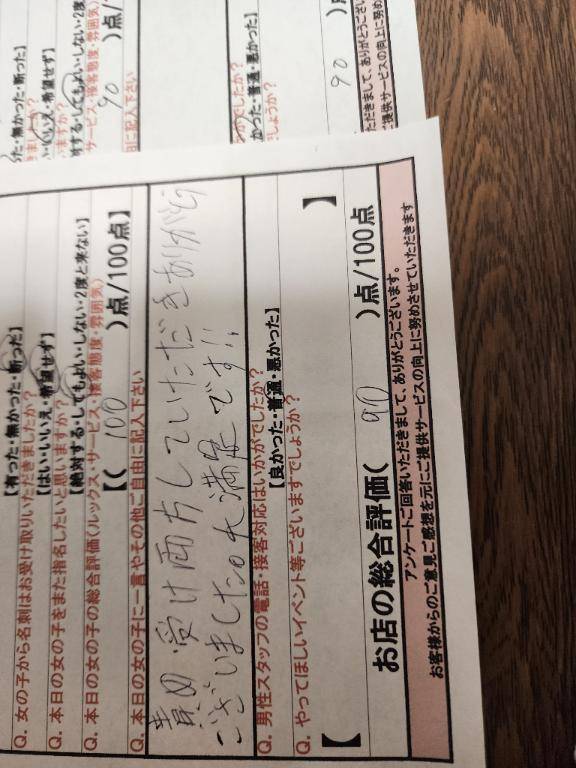 【有った・無かった・断った】
Q. 女の子から名刺はお受け取りいただきましたか?
【はい・いいえ、希望せず】
Q. 本日の女の子をまた指名したいと思いますか?
【絶対する・してもよい・しない・2度と来ない】
Q. 本日の女の子の総合評価(ルックス・サービス・接客態度・雰囲気)
【( 100 )点/100点】
Q. 本日の女の子に一言やその他ご自由に記入下さい
責め 受け両方していただきありがとう
ございました。大満足です!!
Q. 男性スタッフの電話・接客対応はいかがでしたか?
【良かった・普通・悪かった】
Q. やってほしいイベント等ございますでしょうか?
【 】
お店の総合評価( 90 )点/100点
アンケートご回答いただきまして、ありがとうございます。
お客様からのご意見ご感想を元にご提供サービスの向上に努めさせていただきます
った・無かった・断った】
・いいえ・希望せず】
いますか?
対する・してもよい・しない・2度
サービス・接客態度・雰囲気)
90 )点/
由に記入下さい
かった・普通・悪かった】
しょうか?
90 )
ただきまして、ありがとうござい
ご提供サービスの向上に努め